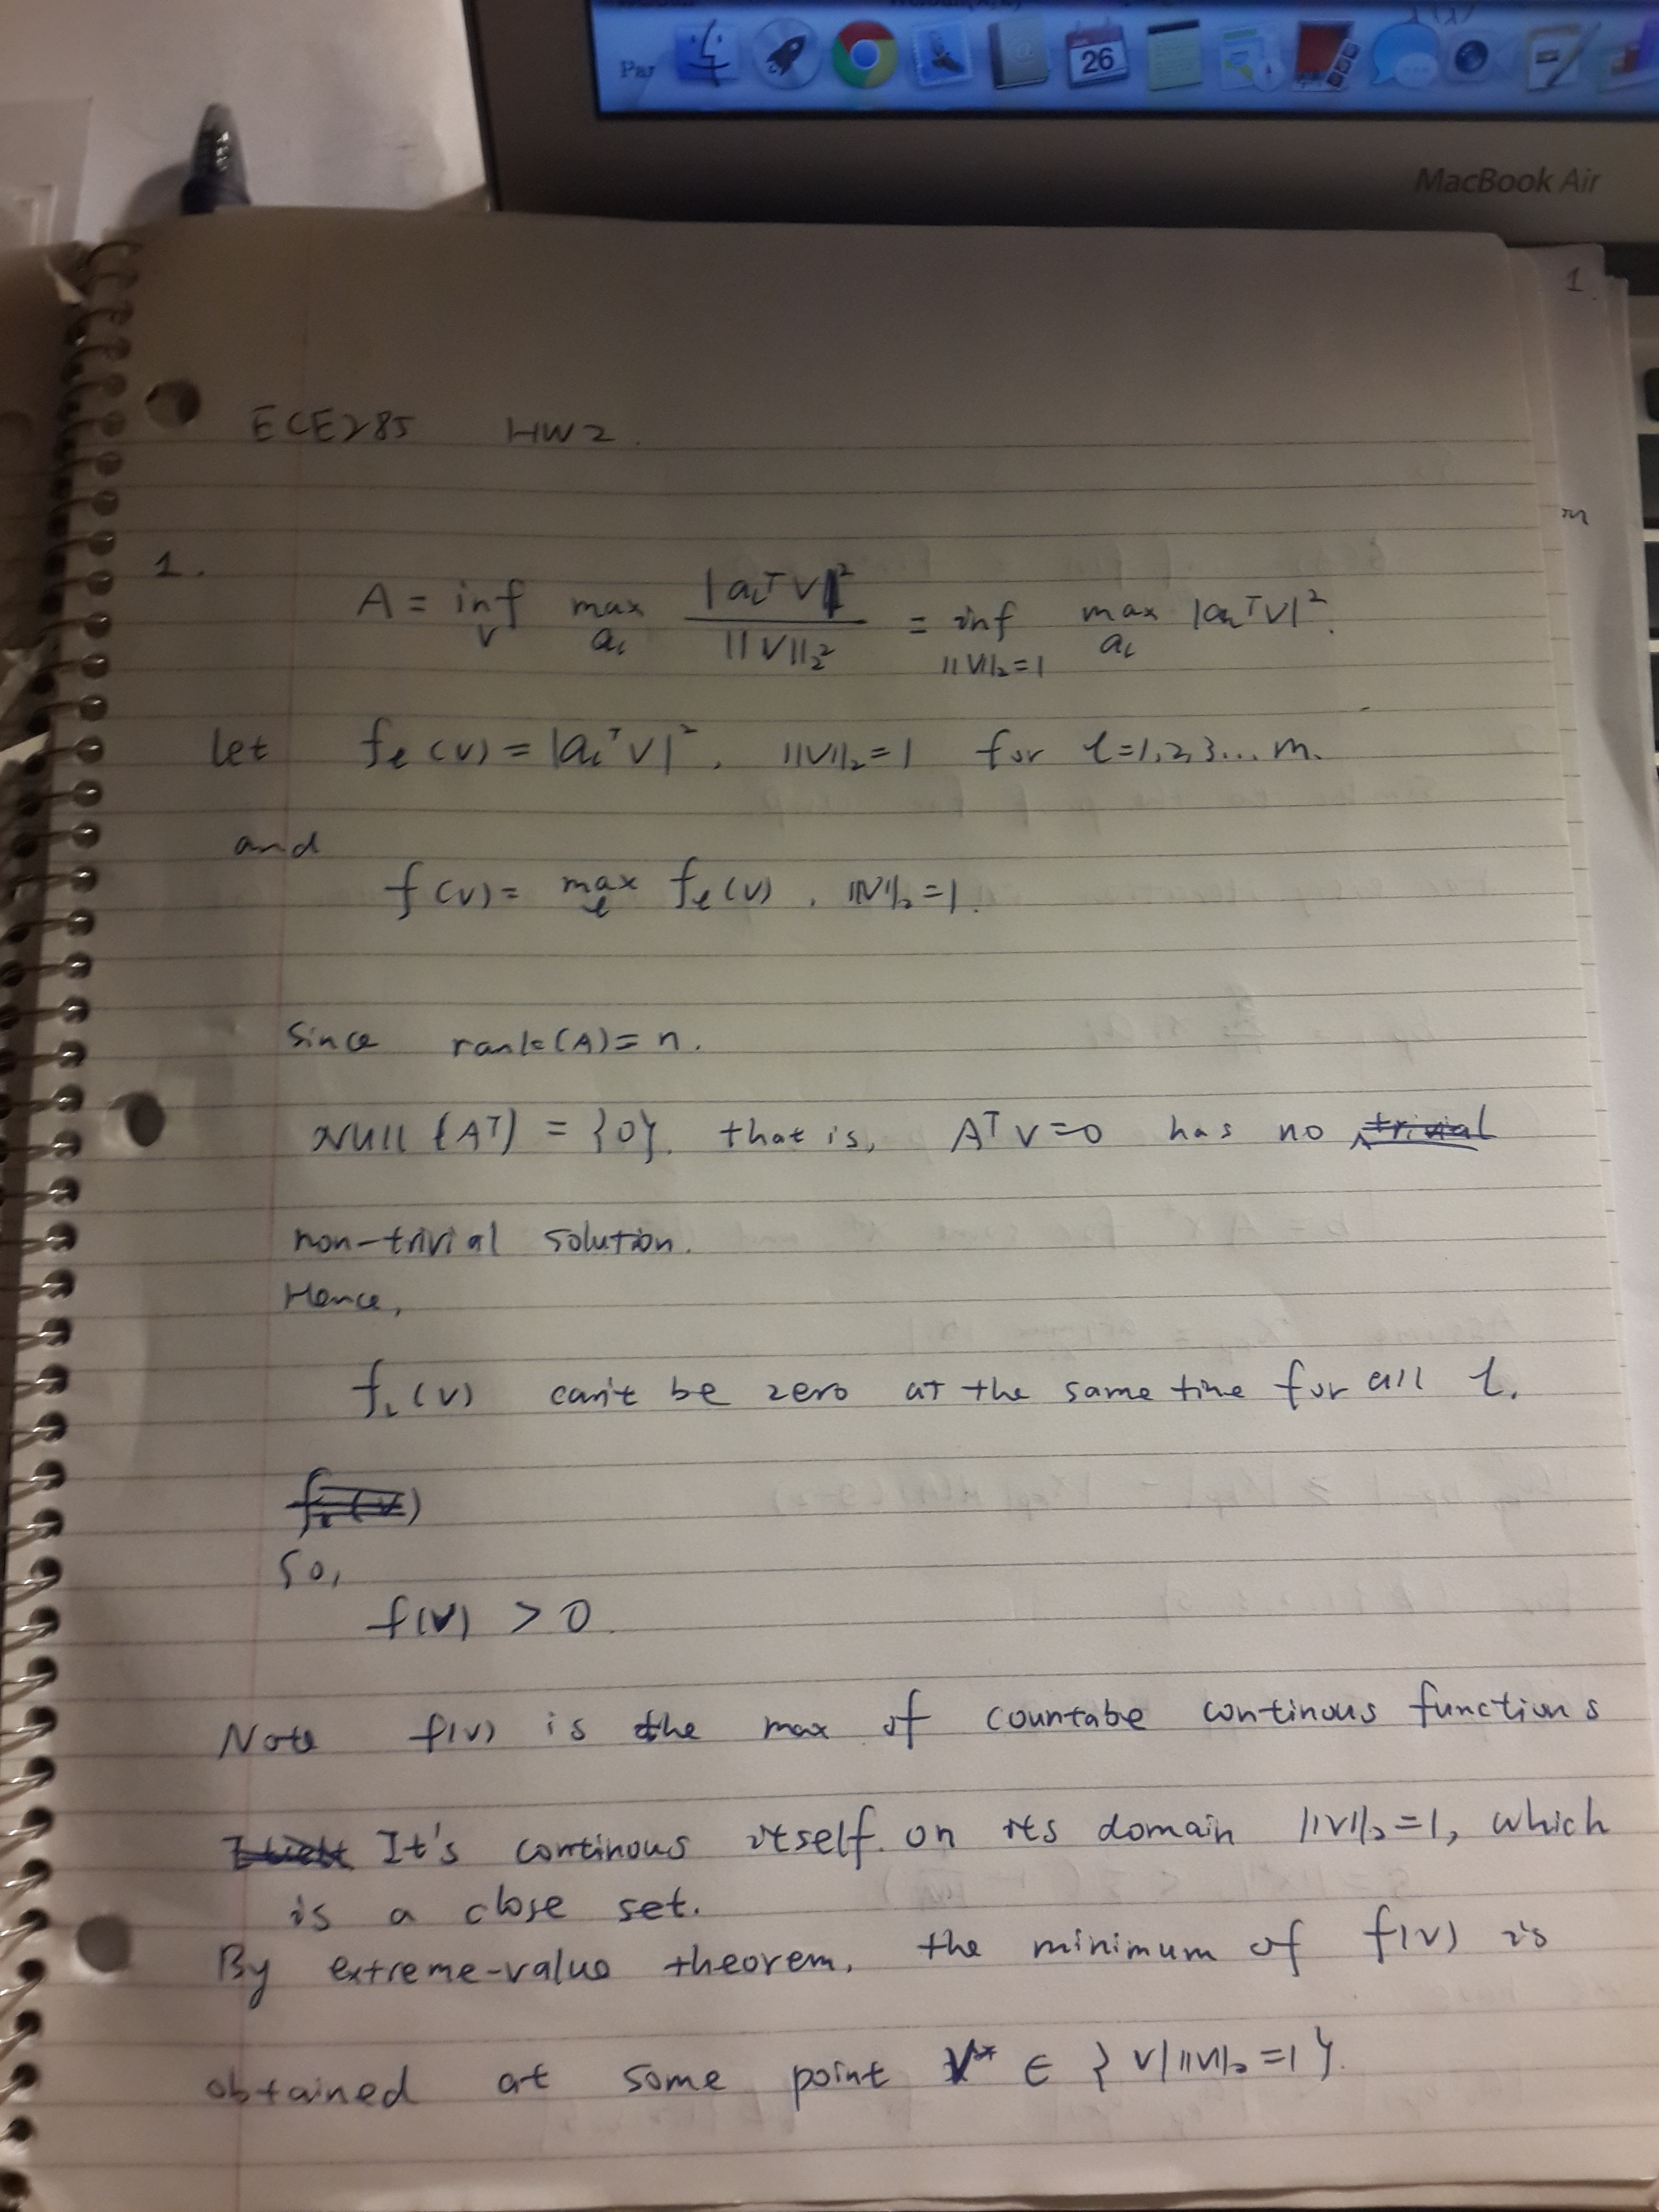 Par
26
MacBook Air
1
m
ECE285 HW2.
1.
A = inf_v max_{a_i} |a_i^T V|^2 / ||V||_2^2 = inf_{||V||_2=1} max_{a_i} |a_i^T V|^2.
let f_i(v) = |a_i^T V|^2, ||V||_2=1 for i=1,2,3...m.
and
f(v) = max_i f_i(v), ||V||_2=1.
Since rank(A)=n.
NULL(A^T) = {0}. that is, A^T v=0 has no trivial
non-trivial solution.
Hence,
f_i(v) can't be zero at the same time for all i.
f_i(v)
So,
f(v) > 0.
Note f(v) is the max of countabe continous functions
It's continous itself. on its domain ||v||_2=1, which
is a close set.
By extreme-value theorem, the minimum of f(v) is
obtained at some point V* ∈ {v| ||v||_2=1}.